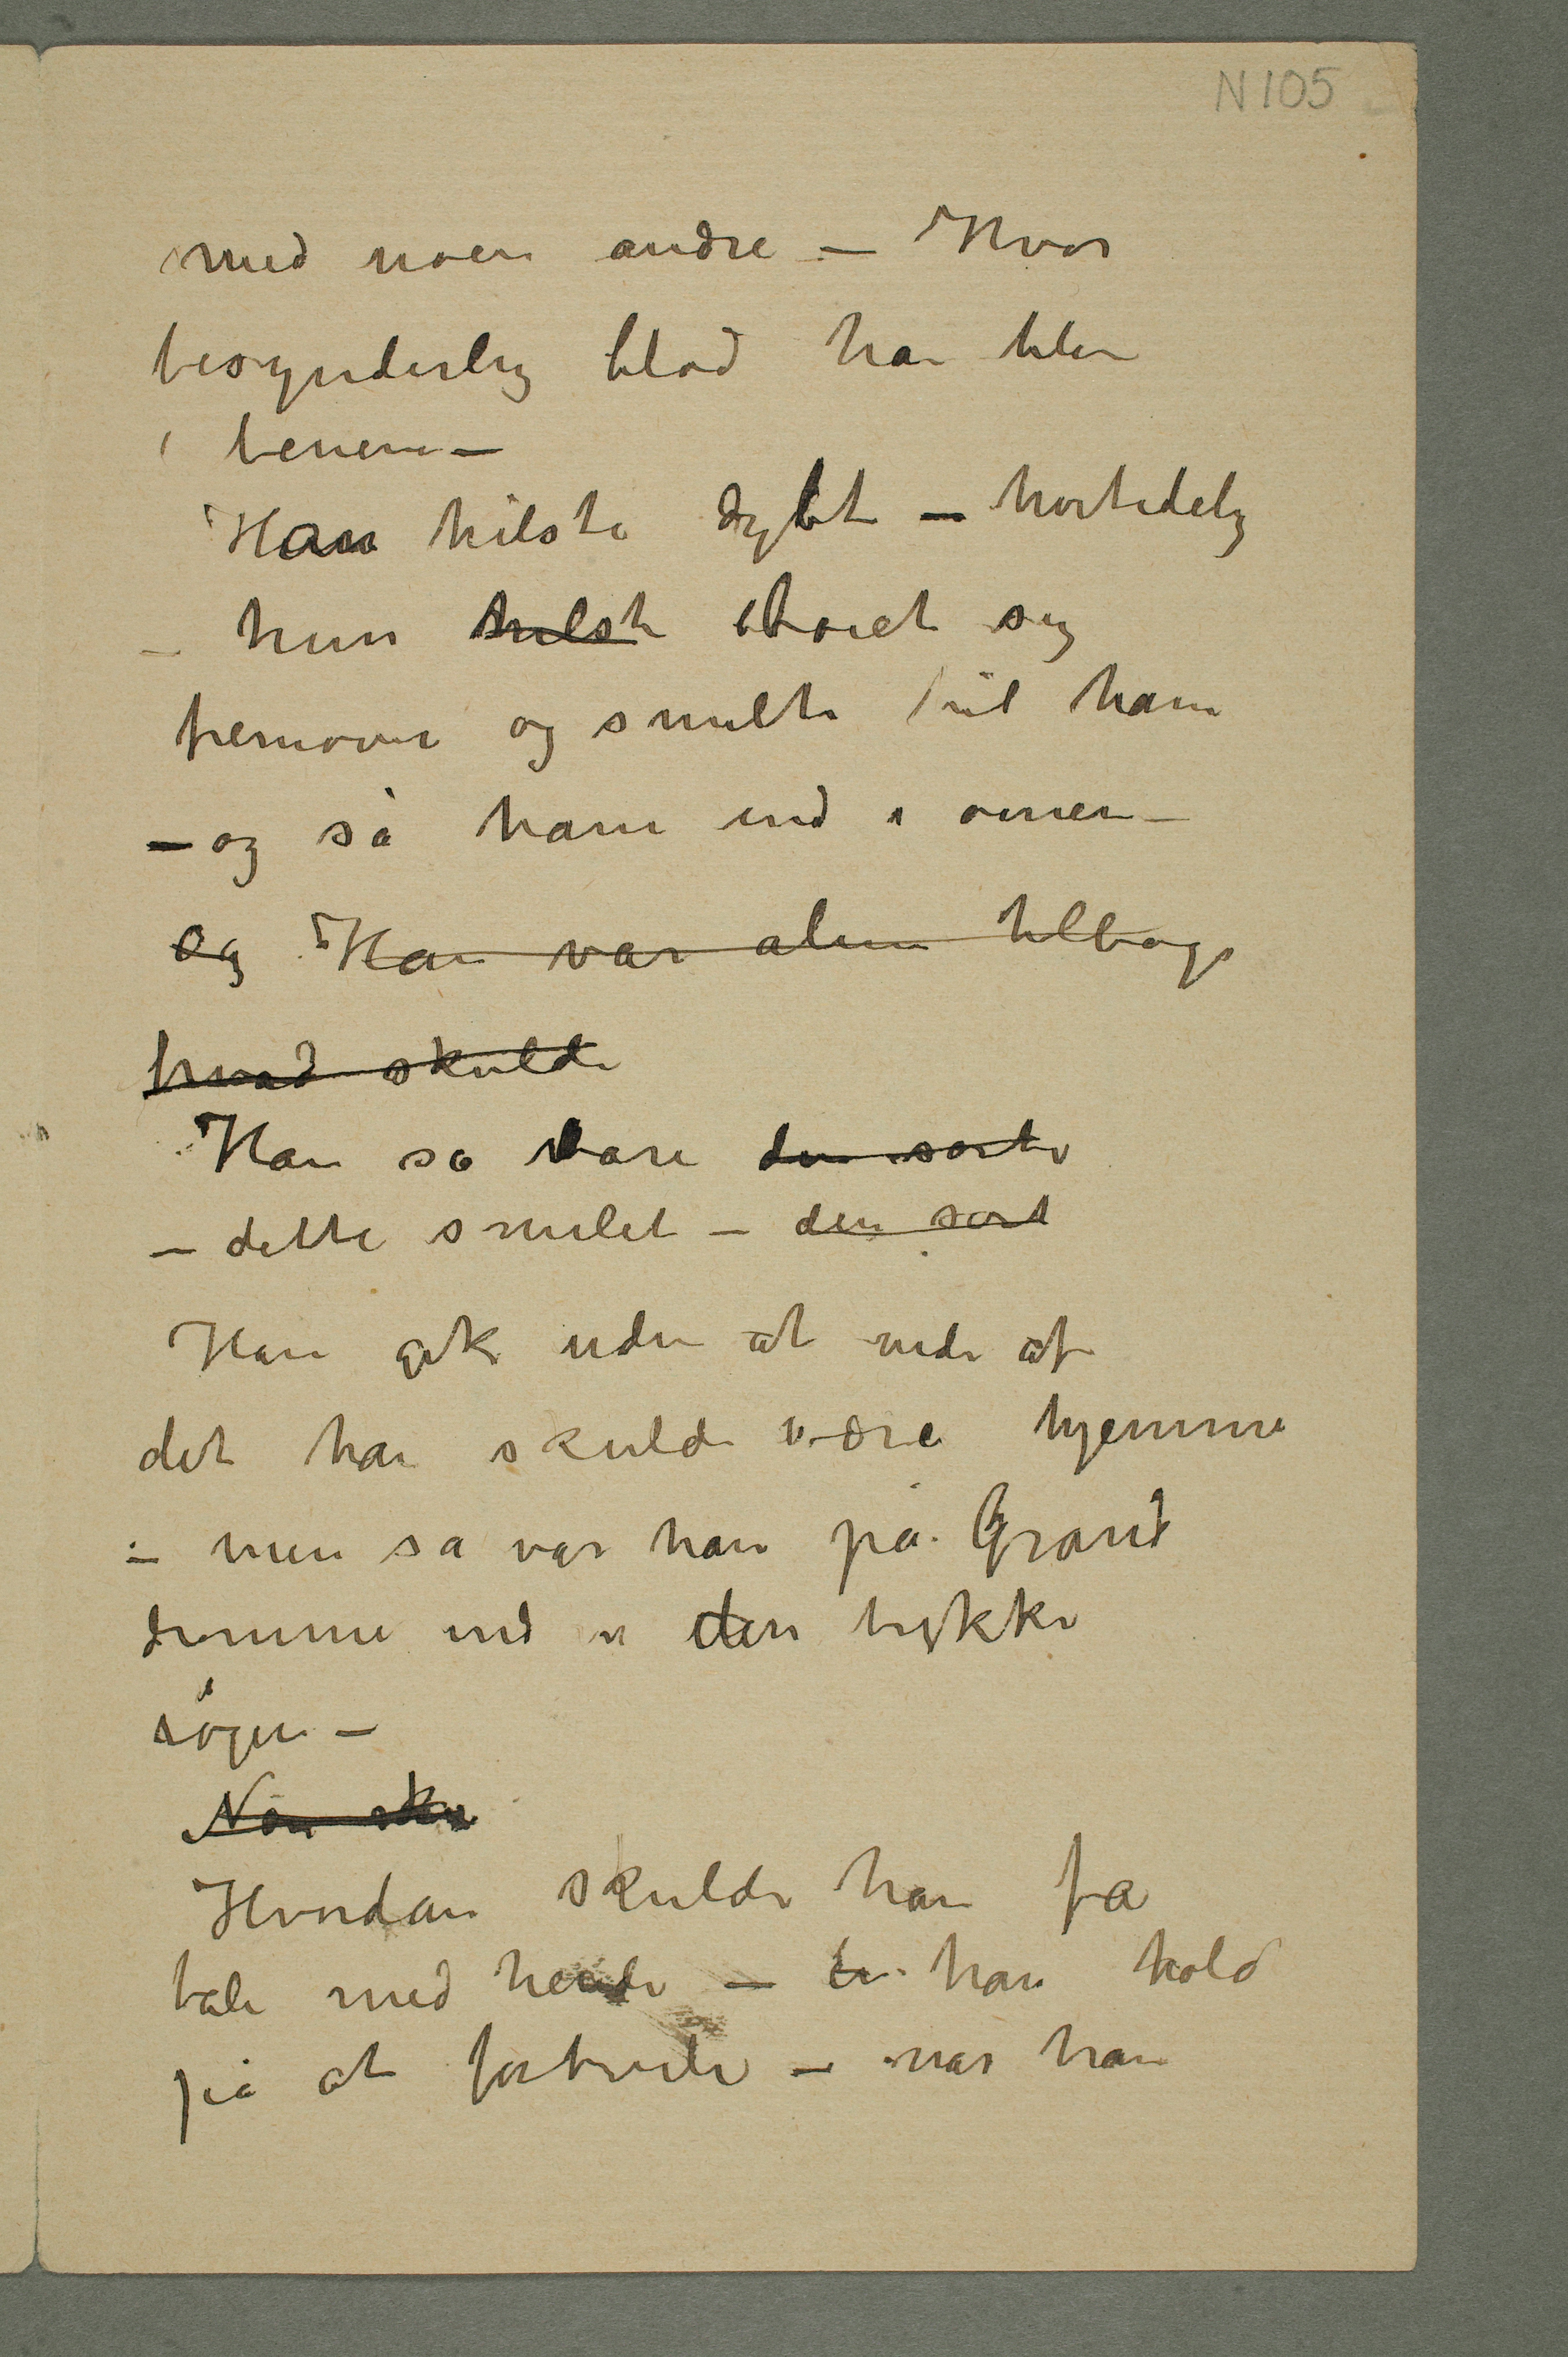 N 105
med noen andre – Hvor
besynderlig blød han blev
i benene –
Han hilste dybt – høitidelig
– hun hilste bøiet sig
fremover og smilte til ham
– og så ham ind i øinene –
og Han var alene tilbage
hvad skulde
Han så bare den sorte
– dette smilet – den sort
Han gik uden at vide af
det han skulde være hjemme
– men så var han på Grand
drømme ind i den tykke
røgen –
Nå sku
Hvordan skulde han få
tale med hende – han holdt
på at fortvile – når han